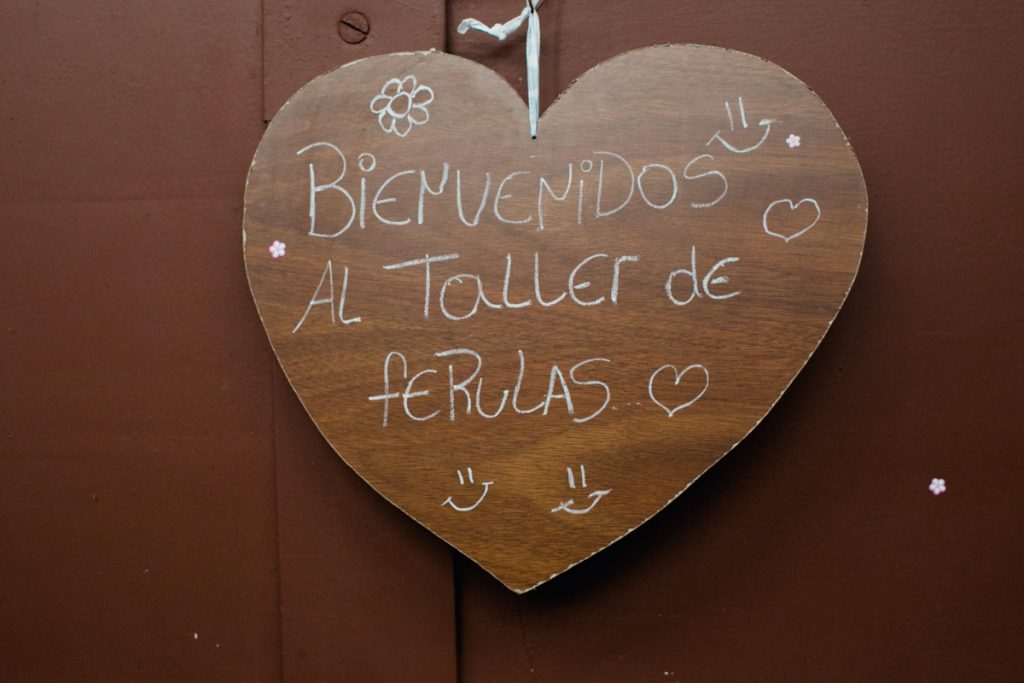 BiENVENiDOS
AL TALLEr de
fERULAS